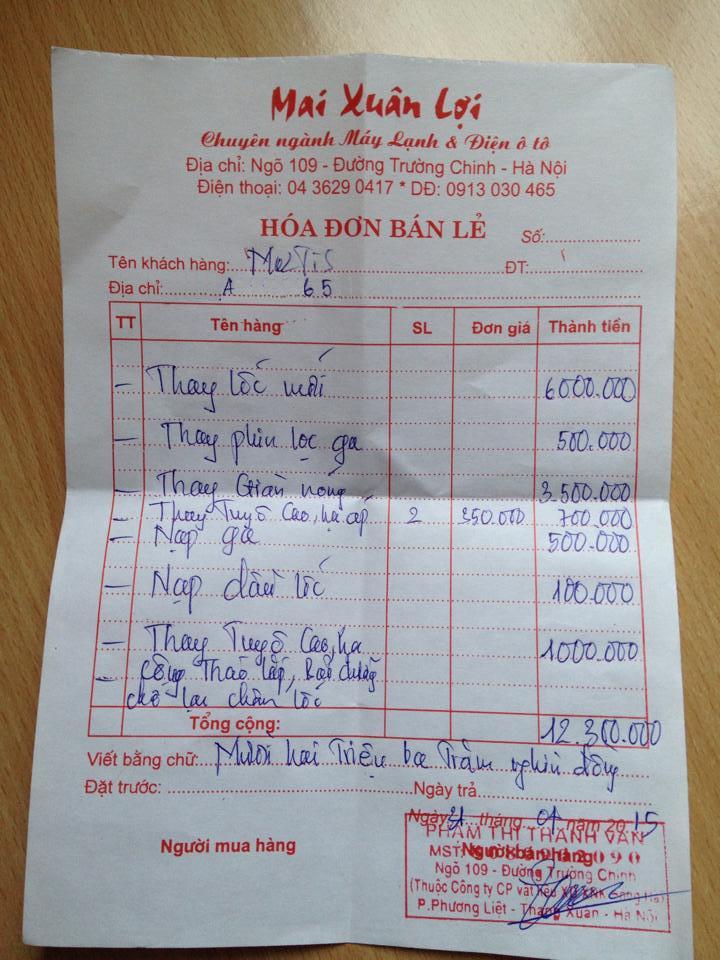 Mai Xuân Lợi
Chuyên ngành Máy Lạnh & Điện ô tô
Địa chỉ: Ngõ 109 - Đường Trường Chinh - Hà Nội
Điện thoại: 04 3629 0417 * DĐ: 0913 030 465
HÓA ĐƠN BÁN LẺ Số:
Tên khách hàng: ĐT:
Địa chỉ: A 65
TT Tên hàng SL Đơn giá Thành tiền
- Thay lốc mới 6000.000
- Thay phin lọc ga 500.000
- Thay Giàn nóng 3.500.000
- Thay Tuyô Cao, hạ áp 2 350.000 700.000
- Nạp ga 500.000
- Nạp dầu lốc 100.000
- Thay Tuyô Cao, hạ 1000.000
- Công Tháo lắp, Bảo dưỡng
chế lại chân lốc
Tổng cộng: 12.300.000
Viết bằng chữ: Mười hai Triệu ba Trăm nghìn đồng
Đặt trước: Ngày trả
Ngày 21 tháng 01 năm 2015
Người mua hàng Người bán hàng
PHẠM THỊ THANH VÂN
MST:
Ngõ 109 - Đường Trường Chinh
(Thuộc Công ty CP vật liệu
P.Phương Liệt - Thanh Xuân - Hà Nội